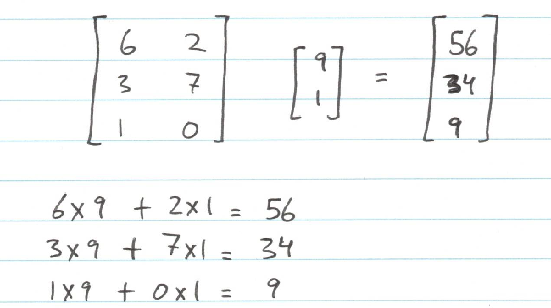 6 2
3 7
1 0
9
1
=
56
34
9
6x9 + 2x1 = 56
3x9 + 7x1 = 34
1x9 + 0x1 = 9